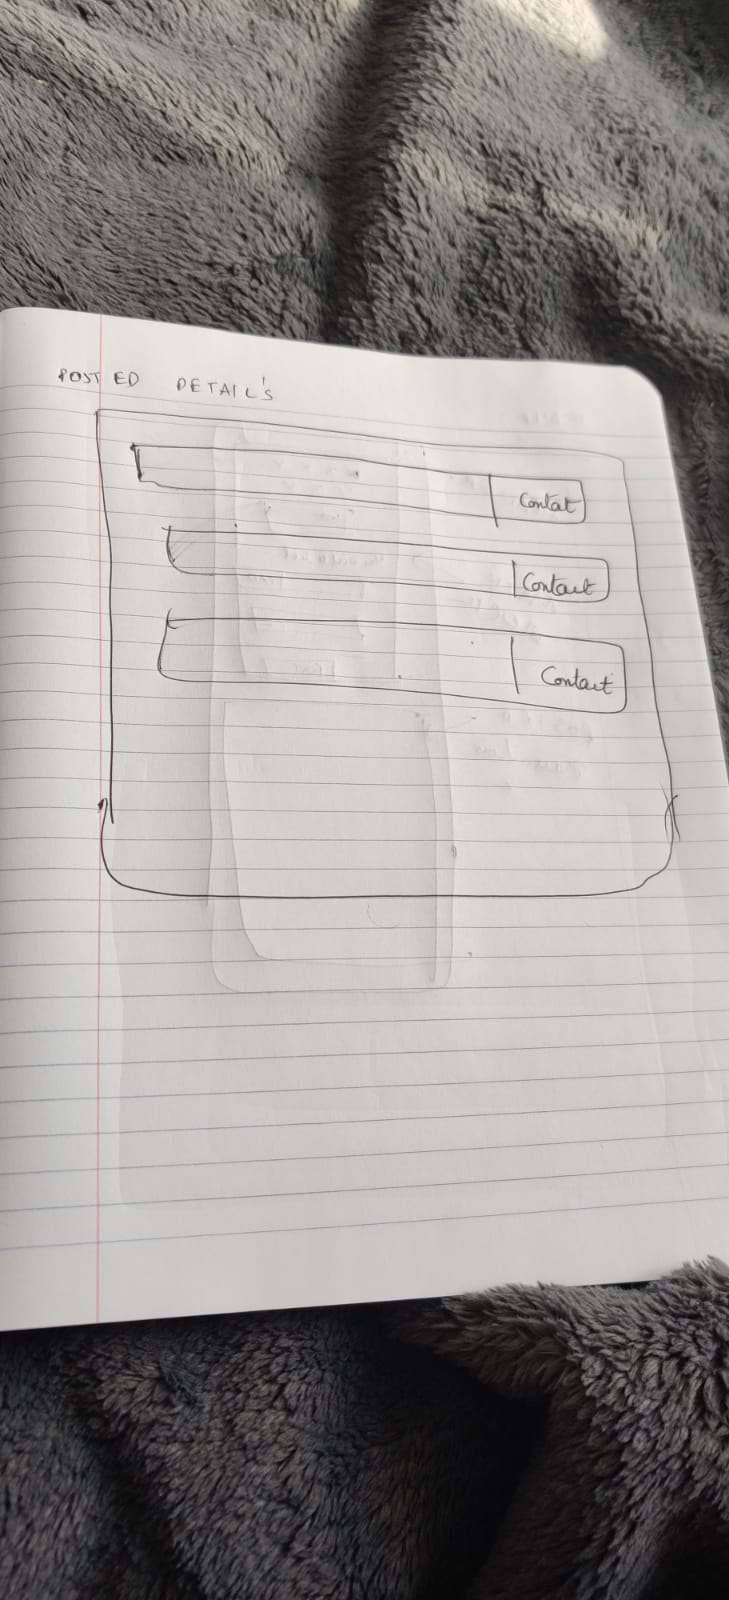 POSTED DETAIL'S
Contat
Contact
Contact